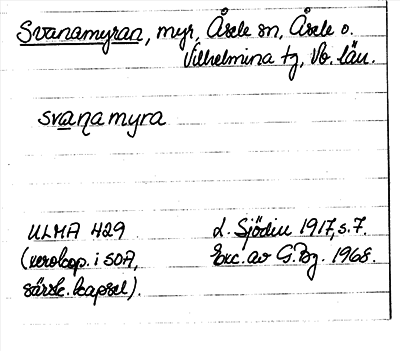 Svanamyran, myr, Åsele sn, Åsele o.
Vilhelmina tg, Vb. län.
svanamyra
ULMA 429
(xerokop. i SOA,
särsk. kapsel).
L. Sjödin 1917, s. 7.
Exc. av G. Bg. 1968.